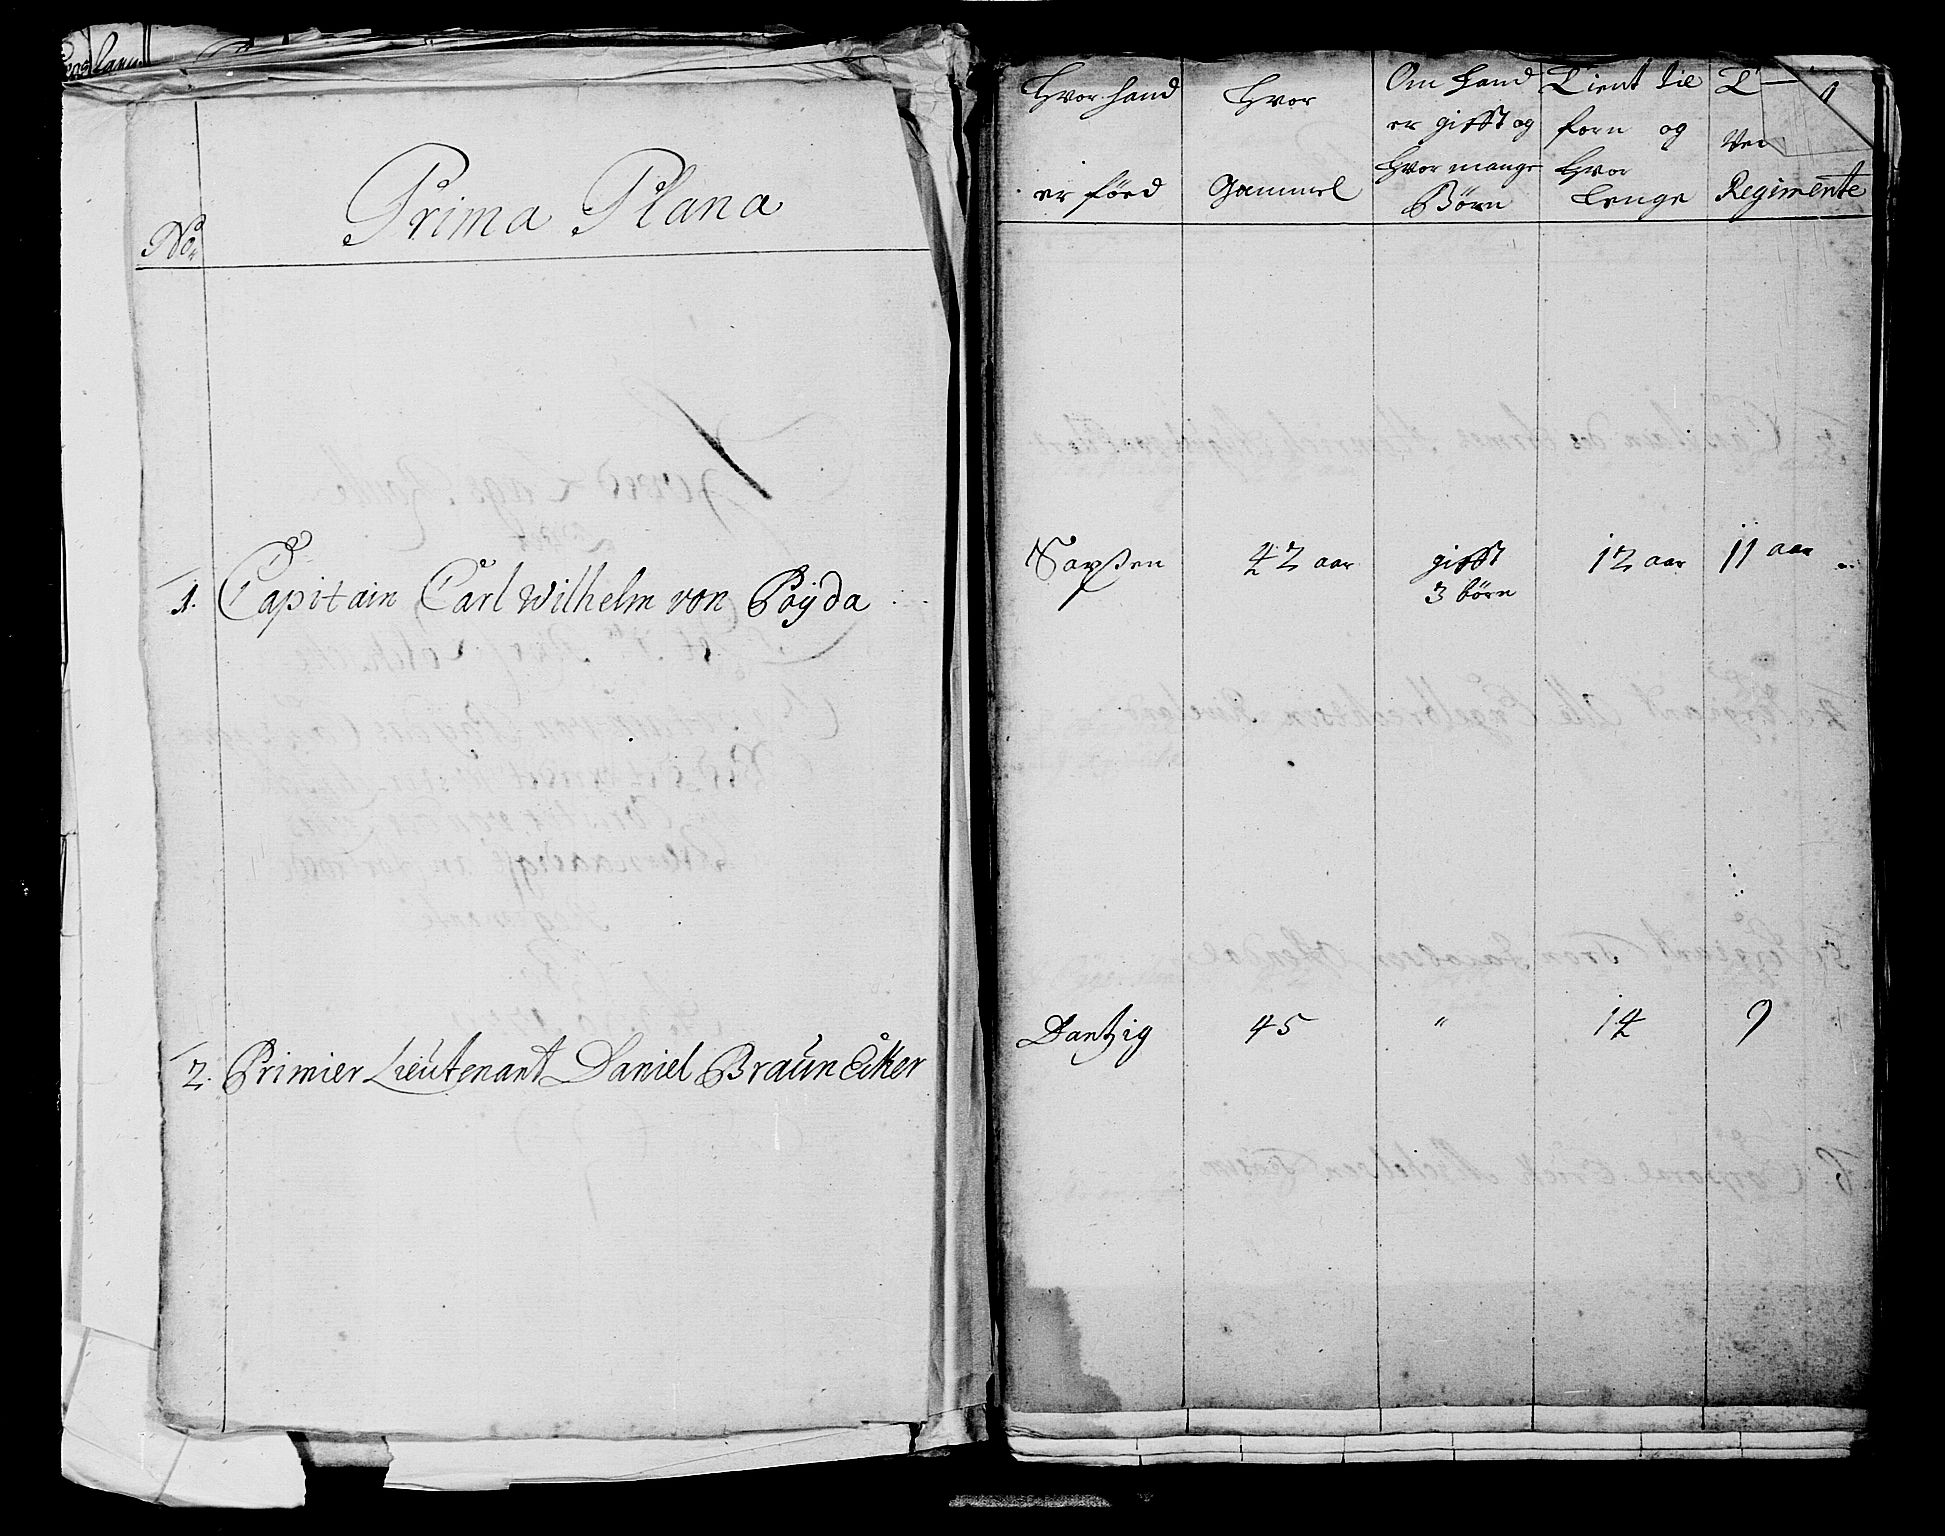 No.
Prima Plana
1. Capitain Carl Wilhelm von Poÿda
2. Primier Lieutenant Daniel Braun Ecker
Hvor hand
er föed
Hvor
Gammel
Om hand
er gifft og
hvor mange
Börn
Tient til
forn og
hvor
lenge
Ved
Regimente
Saxsen
42 aar
gifft
3 börn
12 aar
11 aar
Dantzig
45
"
14
9